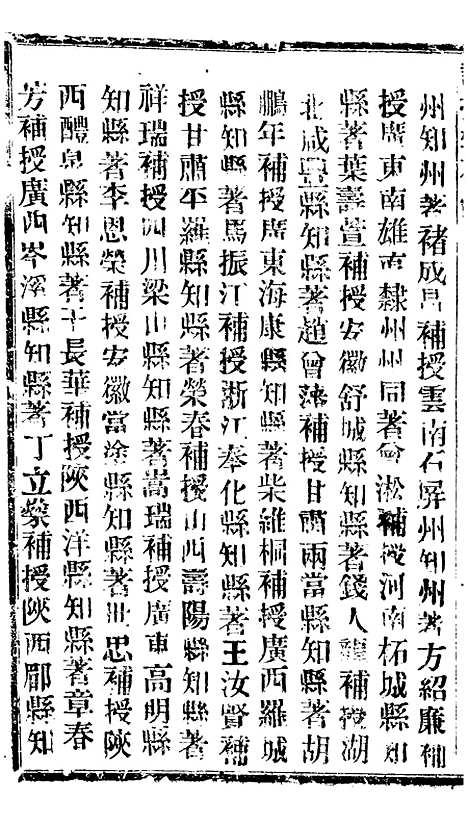 州知州著褚成昌補授雲南石屏州知州著方紹廉補
授廣東南雄直隸州州同著俞淞補授河南柘城縣知
縣著葉壽萱補授安徽舒城縣知縣著錢人龍補授湖
北咸豐縣知縣著趙曾 補授甘肅兩當縣知縣著胡
鵬年補授廣東海康縣知縣著柴維桐補授廣西羅城
縣知縣著馬振江補授浙江奉化縣知縣著王汝賢補
授甘肅平羅縣知縣著榮春補授山西壽陽縣知縣著
祥瑞補授四川梁山縣知縣著嵩瑞補授廣東高明縣
知縣著李恩榮補授安徽當塗縣知縣著世思補授陝
西醴泉縣知縣著 長華補授陝西洋縣知縣著章春
芳補授廣西岑溪縣知縣著丁立 補授陝西郿縣知